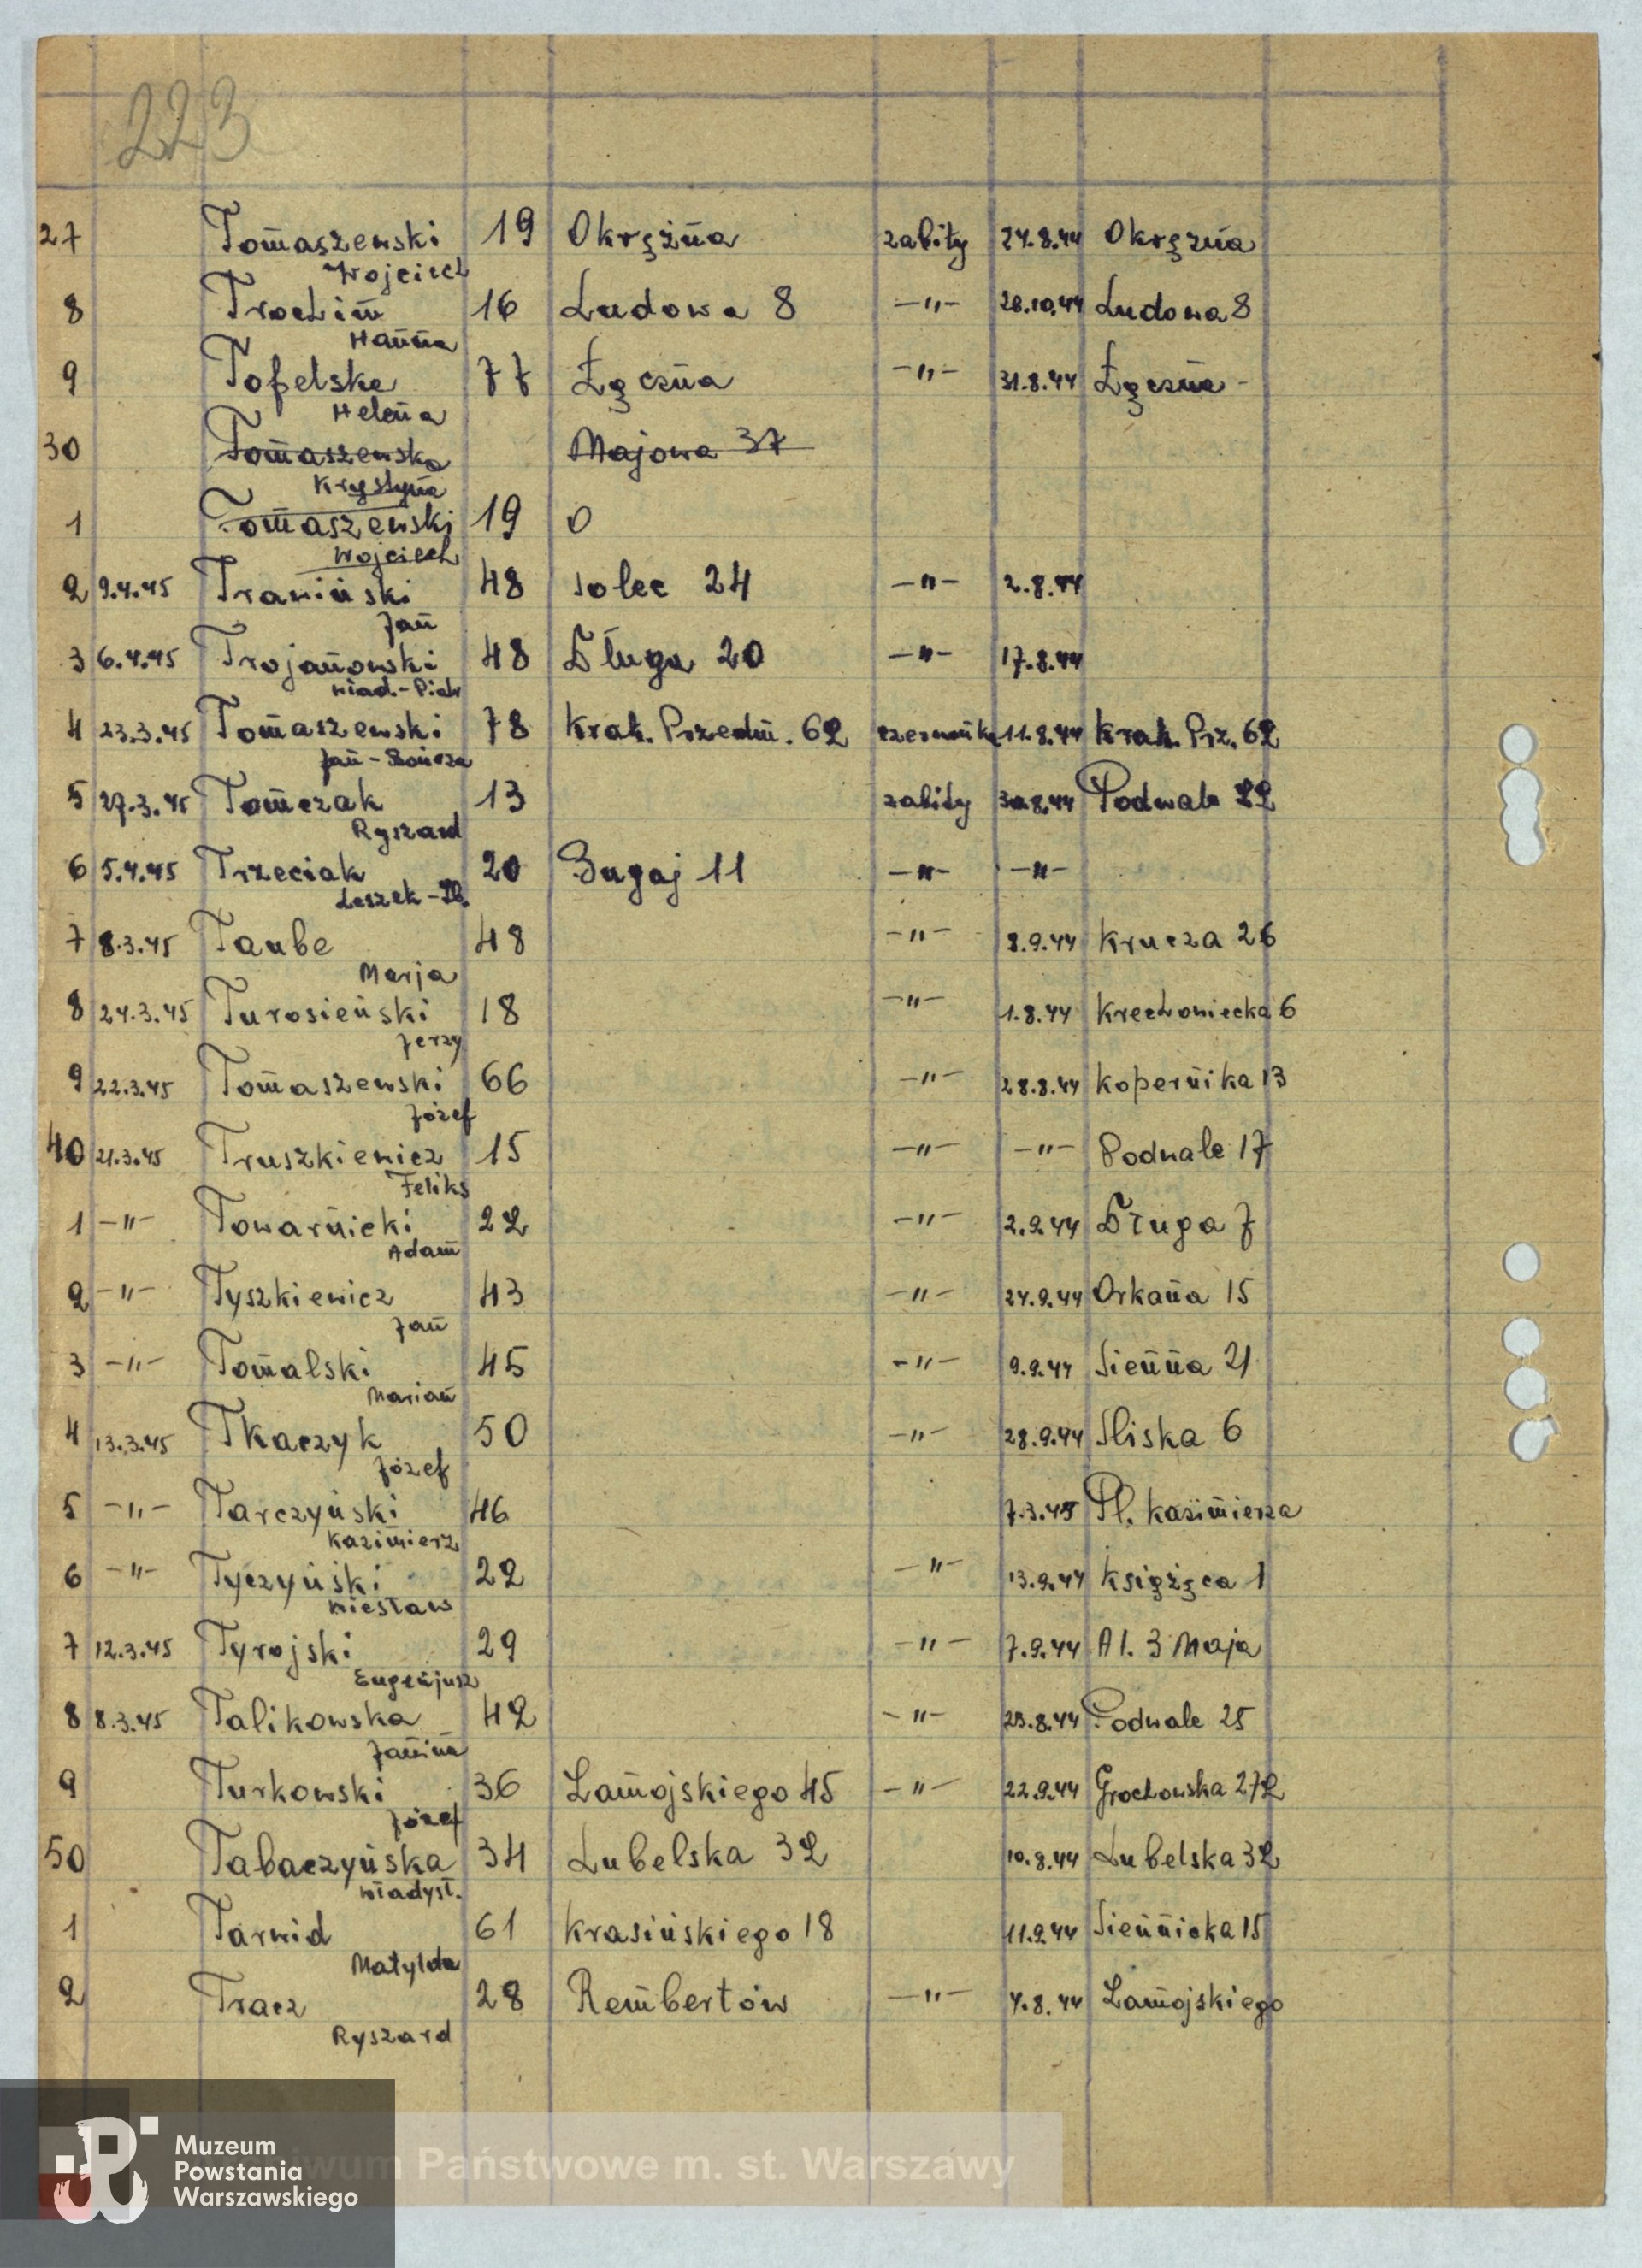 223
27 Tomaszewski 19 Okrężna zabity 24.8.44 Okrężna
Wojciech
8 Trochim 16 Ludowa 8 -"- 28.10.44 Ludowa 8
Hanna
9 Tofelska 77 Łęczna -"- 31.8.44 Łęczna -
Helena
30 Tomaszewska Majowa 37
Krystyna
1 Tomaszewski 19 0
Wojciech
2 9.4.45 Traniński 48 Solec 24 -"- 2.8.44
Jan
3 6.4.45 Trojanowski 48 Długa 20 -"- 17.8.44
Wład.-Piotr
4 23.3.45 Tomaszewski 78 Krak. Przedm. 62 czerwonka 11.8.44 Krak. Prz. 62
Jan-
5 27.3.45 Tomczak 13 zabity 30.8.44 Podwale 22
Ryszard
6 5.4.45 Trzeciak 20 Bugaj 11 -"- -"-
Leszek-Zb.
7 8.3.45 Taube 48 -"- 8.9.44 Krucza 26
Marja
8 24.3.45 Turosieński 18 -"- 1.8.44 Krechowiecka 6
Jerzy
9 22.3.45 Tomaszewski 66 -"- 28.8.44 Kopernika 13
Józef
40 21.3.45 Truszkiewicz 15 -"- -"- Podwale 17
Feliks
1 -"- Towarnicki 22 -"- 2.9.44 Długa 7
Adam
2 -"- Tyszkiewicz 43 -"- 24.9.44 Orkana 15
Jan
3 -"- Tomalski 45 -"- 9.9.44 Sienna 21
Marian
4 13.3.45 Tkaczyk 50 -"- 28.9.44 Śliska 6
Józef
5 -"- Tarczyński 46 7.3.45 Pl. Kazimierza
Kazimierz
6 -"- Tyczyński 22 -"- 13.9.44 Książęca 1
Wiesław
7 12.3.45 Tyrojski 29 -"- 7.9.44 Al. 3 Maja
Eugenjusz
8 8.3.45 Talikowska 42 -"- 23.8.44 Podwale 25
Janina
9 Turkowski 36 Zamojskiego 45 -"- 22.9.44 Grochowska 272
Józef
50 Tabaczyńska 34 Lubelska 32 10.8.44 Lubelska 32
Władysł.
1 Tarwid 61 Krasińskiego 18 11.9.44 Siennicka 15
Matylda
2 Tracz 28 Rembertów -"- 4.8.44 Zamojskiego
Ryszard
Muzeum
Powstania
Warszawskiego
iwum Państwowe m. st. Warszawy